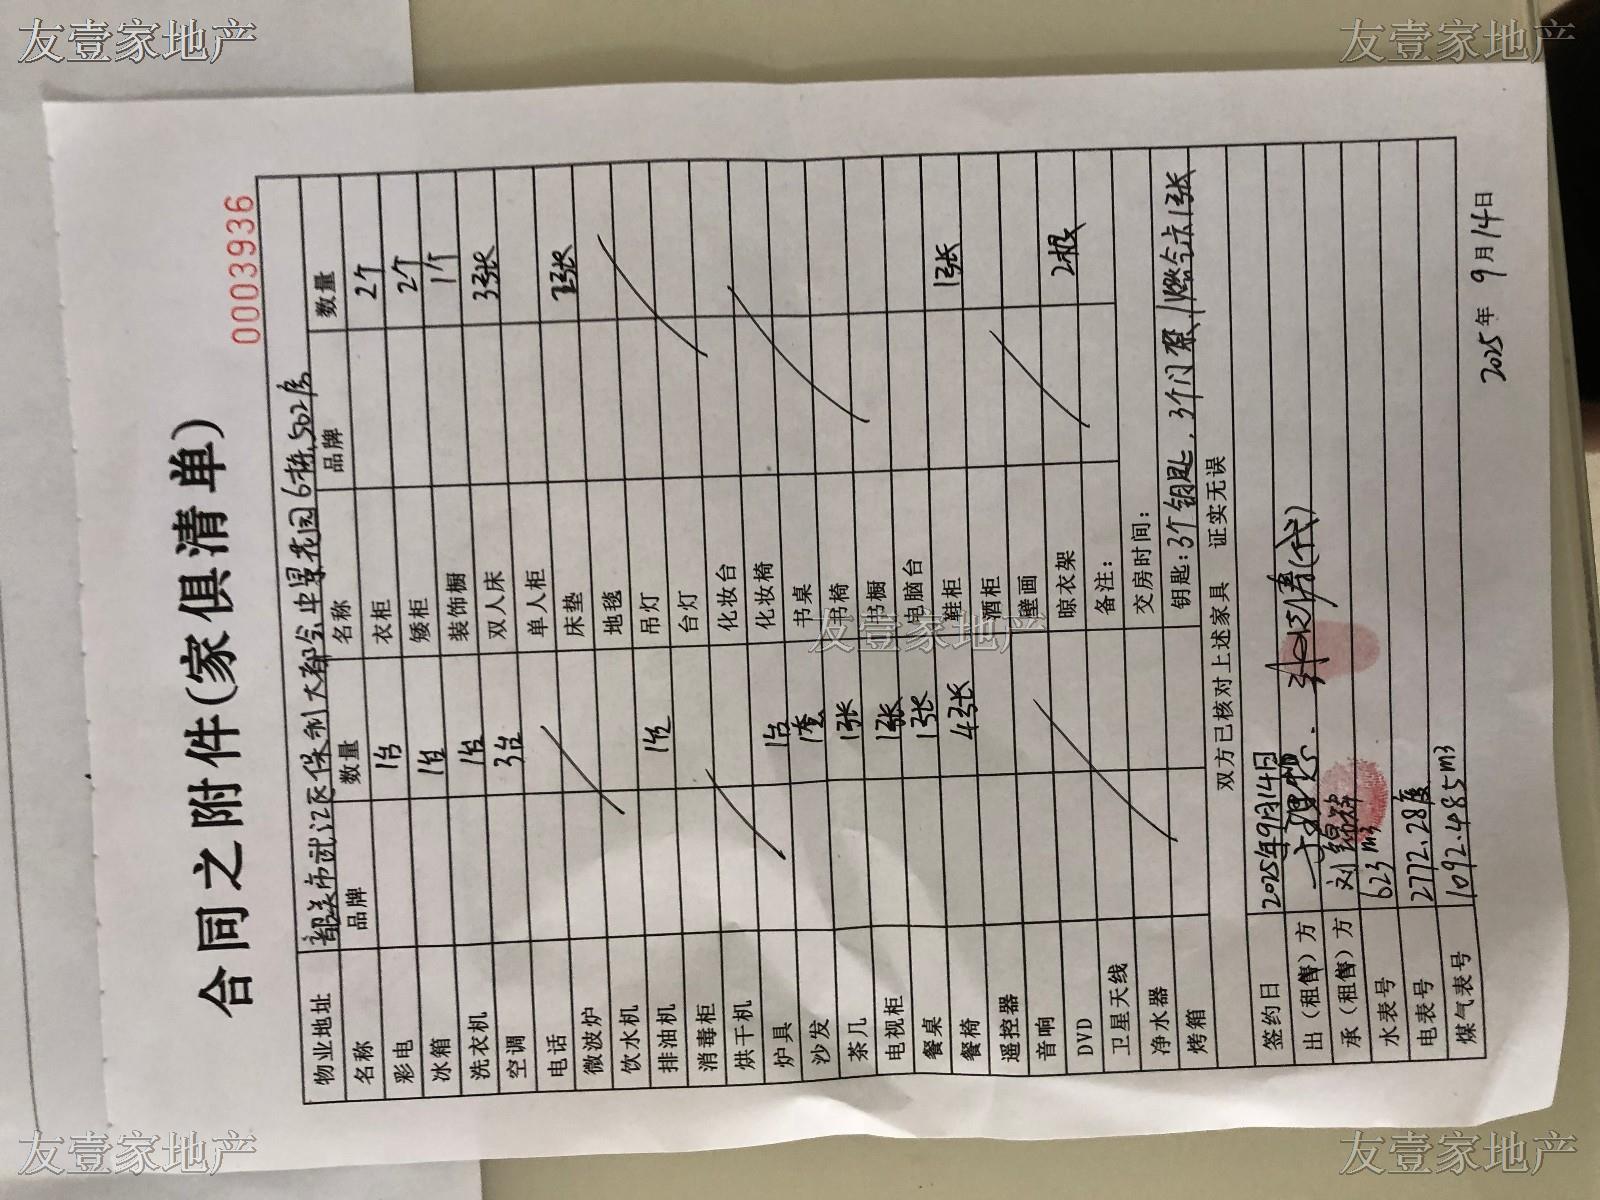 友壹家地产
友壹家地产
合同之附件(家俱清单)
0003936
物业地址 韶关市武江区保利大都会中景花园6栋502房
名称 品牌 数量 名称 品牌 数量
彩电 1台 衣柜 2个
冰箱 1台 矮柜 2个
洗衣机 1台 装饰橱 1个
空调 3台 双人床 3张
电话 单人柜
微波炉 床垫 3张
饮水机 地毯
排油机 1台 吊灯
消毒柜 台灯
烘干机 化妆台
炉具 1台 化妆椅
沙发 1套 书桌
茶几 1张 书椅
电视柜 1张 书橱
餐桌 1张 电脑台
餐椅 4张 鞋柜 1张
遥控器 酒柜
音响 壁画
DVD 晾衣架 2根
卫星天线 备注:
净水器 交房时间:
烤箱 钥匙:3个钥匙,3个门禁,燃气卡1张
双方已核对上述家具 证实无误
签约日 2025年9月14日
出(租售)方 (代)
承(租售)方 刘
水表号 623m3
电表号 2772.28度
煤气表号 1092.485m3
2025年9月14日
友壹家地产
友壹家地产
友壹家地产